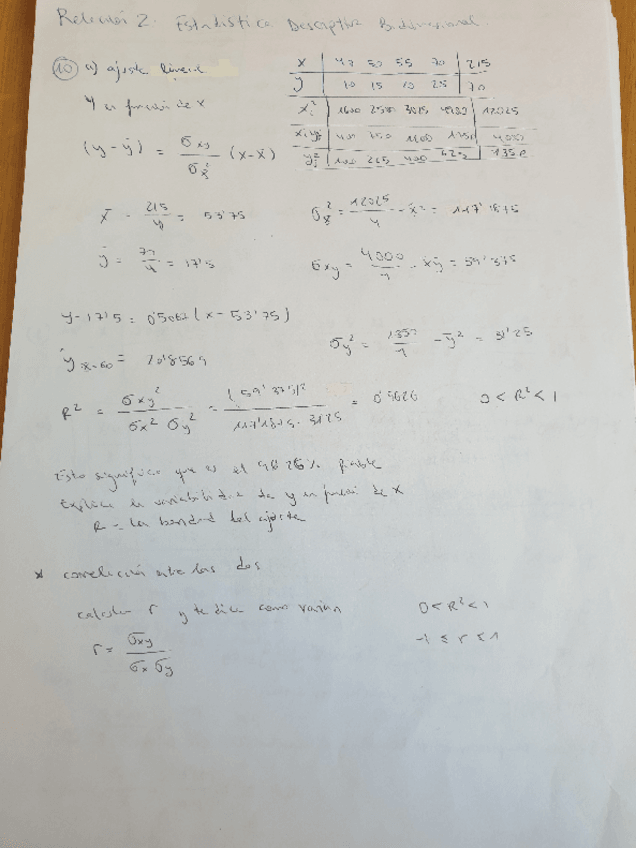 Relación 2. Estadística Descriptiva Bidimensional.
10 a) ajuste lineal
x 40 50 55 70 215
y 10 15 20 25 70
Y en función de x
x²ᵢ 1600 2500 3025 4900 12025
xᵢyᵢ 400 750 1100 1750 4000
y²ᵢ 100 225 400 625 1350
(y - ȳ) = σxy / σx² (x - x̄)
x̄ = 215/4 = 53'75
σx² = 12025/4 - x̄² = 117'1875
ȳ = 70/4 = 17'5
σxy = 4000/4 - x̄ȳ = 59'375
y - 17'5 = 0'5067 (x - 53'75)
σy² = 1350/4 - ȳ² = 31'25
ŷx=60 = 20'8569
R² = σxy² / σx² σy² = (59'375)² / 117'1875 · 31'25 = 0'9626 0 < R² < 1
Esto significa que es el 96'26% fiable
Explica la variabilidad de y en función de x
R = la bondad del ajuste
* correlación entre las dos
calcular r y te dice como varían 0 < R² < 1
r = σxy / σx σy -1 ≤ r ≤ 1